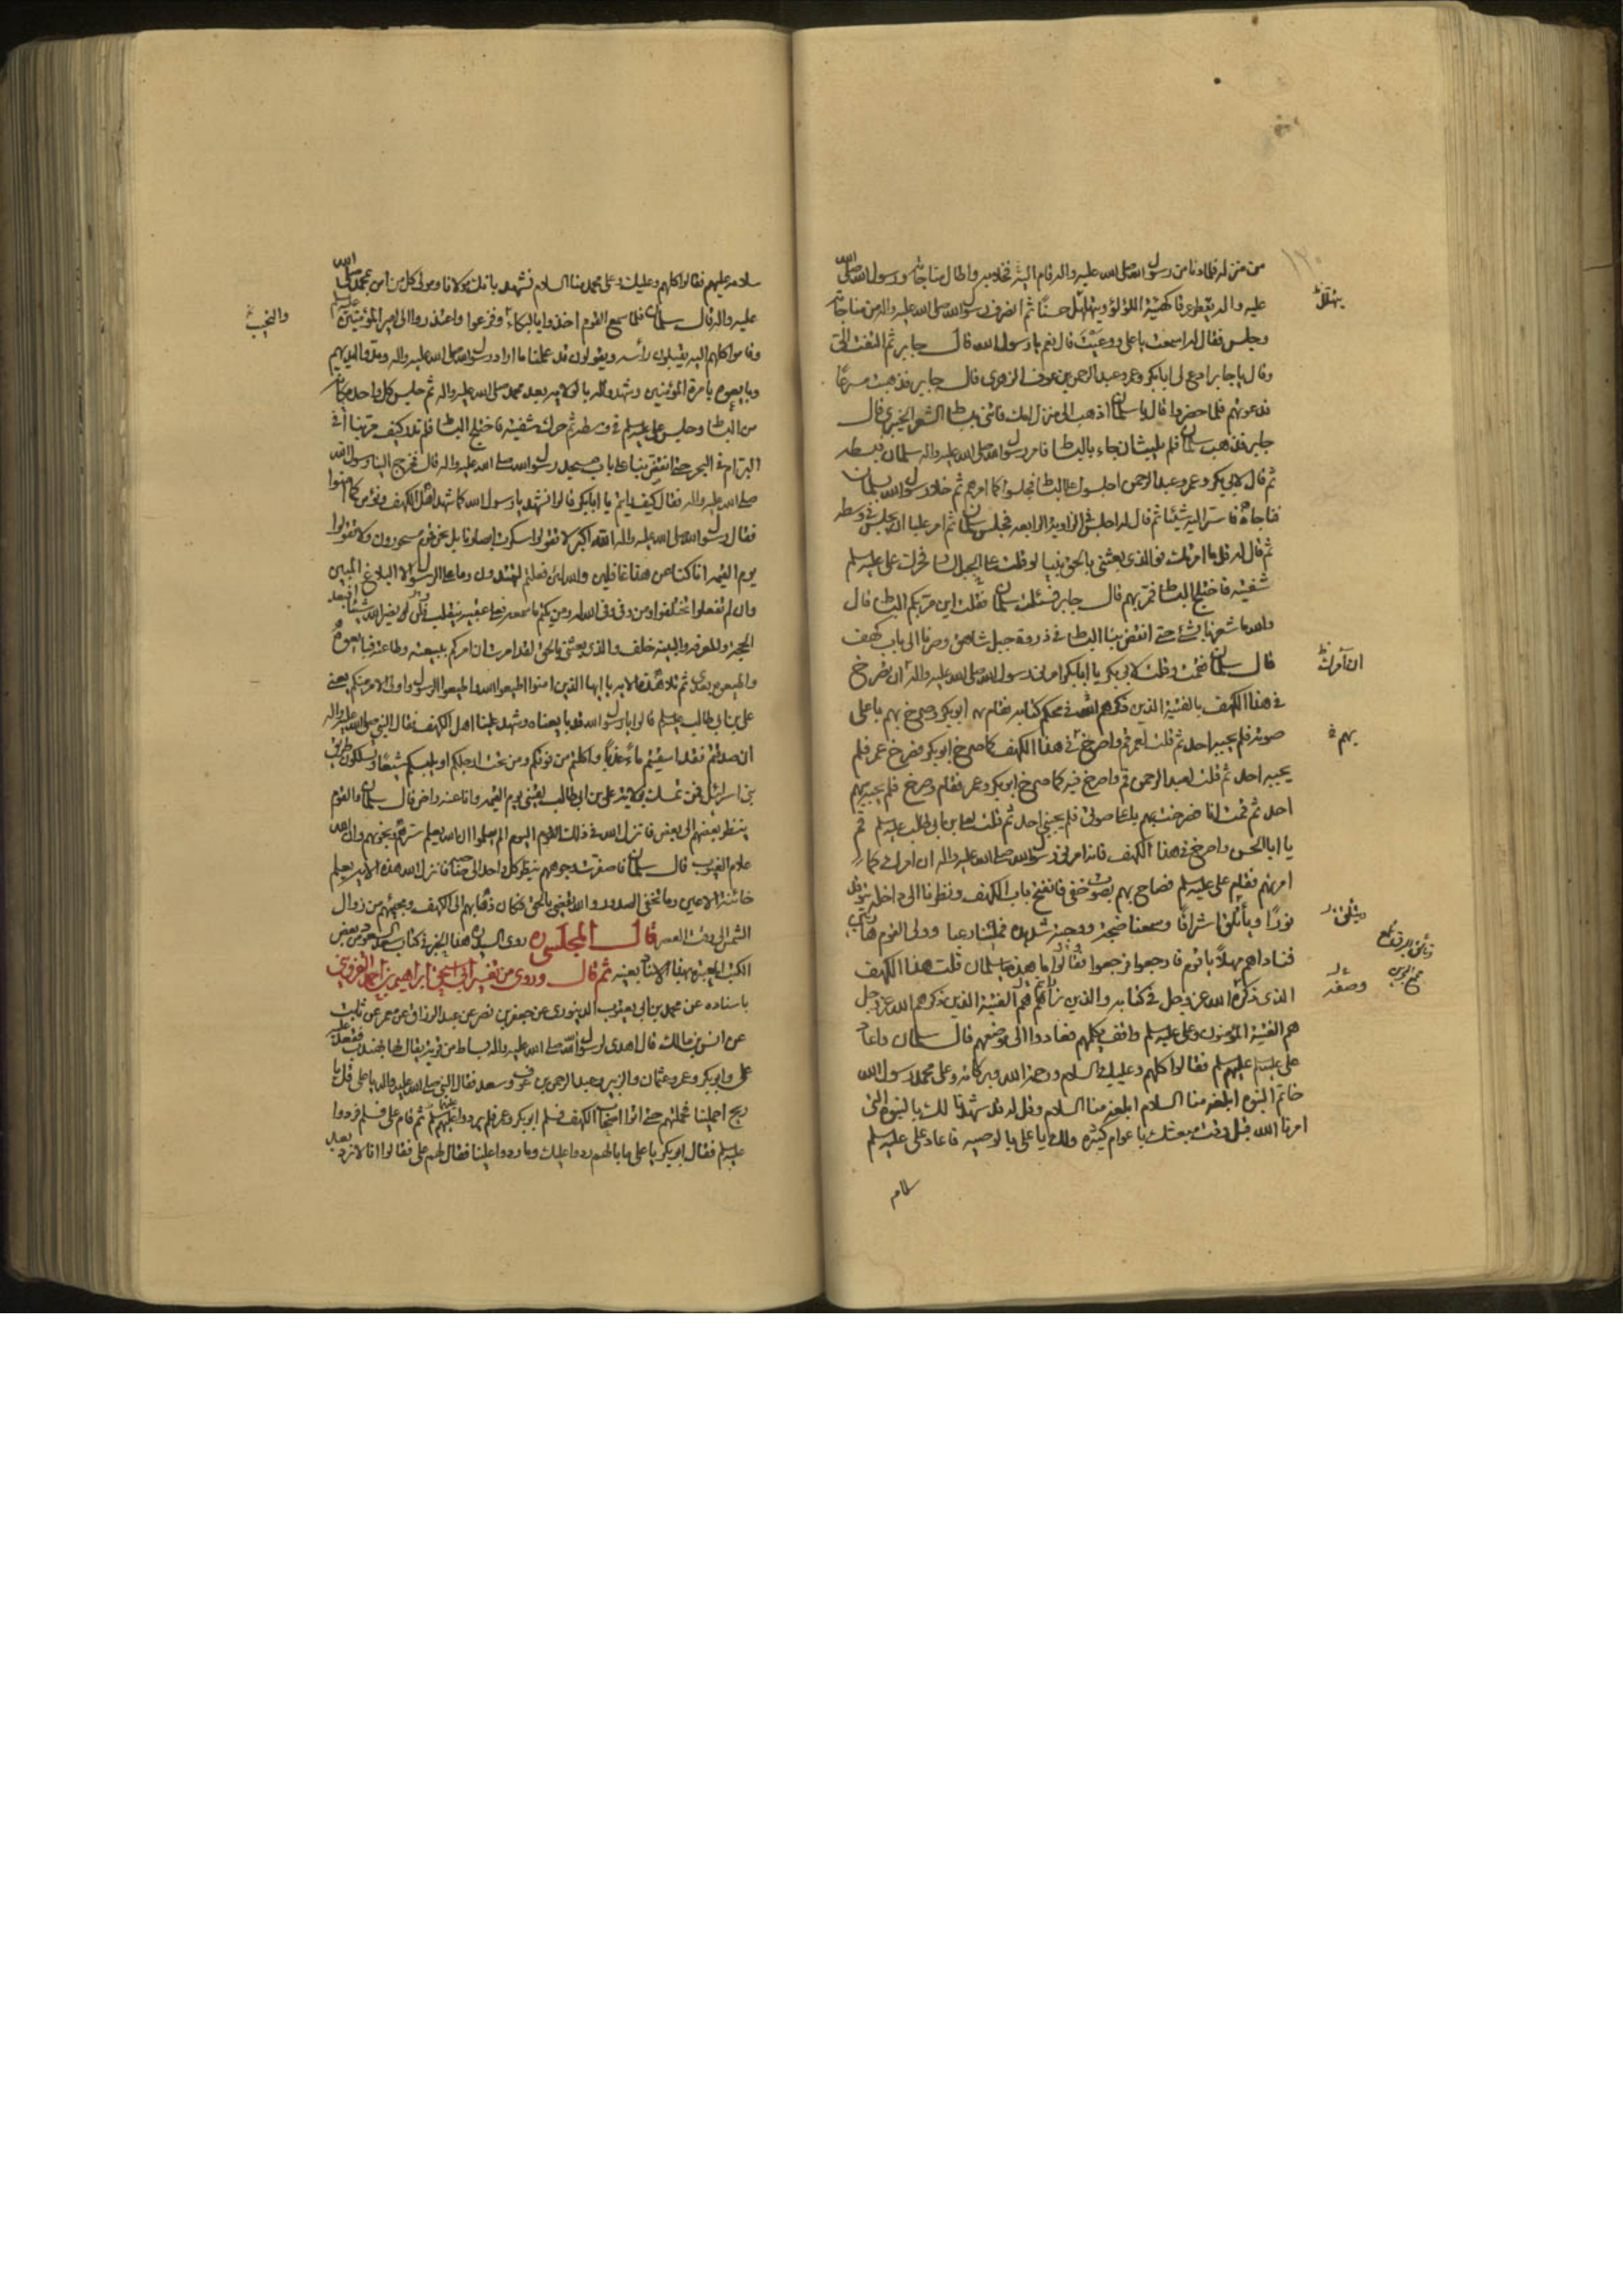 من منزله فلما دنا من رسول الله صلى الله عليه واله قام اليه فخلا به واطال مناجاته ورسول الله صلى الله
عليه واله يقطر عرقا كهيئة اللؤلؤ ويتهلل حسنا ثم انصرف رسول الله صلى الله عليه واله من مناجاته
وجلس فقال له اسمعت يا على ووعيت قال نعم يا رسول الله قال جابر ثم التفت الى
وقال يا جابر ادع لى ابابكر وعمر وعبد الرحمن بن عوف الزهرى قال جابر فذهبت مسرعا
فدعوتهم فلما حضروا قال يا سلمان اذهب الى منزل امك فأتنى ببساط الشعر الخيبرى قال
جابر فذهب سلمان فلم يلبث ان جاء بالبساط فامر رسول الله صلى الله عليه واله سلمان فبسطه
ثم قال لابى بكر وعمر وعبد الرحمن اجلسوا على البساط فجلسوا كما امرهم ثم خلا رسول الله بسلمان
فناجاه فاسر اليه شيئا ثم قال له اجلس فى الزاوية الرابعة فجلس سلمان ثم امر عليا ان يجلس فى وسطه
ثم قال له قل ما امرتك فوالذى بعثنى بالحق نبيا لو قلت على الجبل لسار فحرك على عليه سلم
شفتيه فاختلج البساط فمر بهم قال جابر فسئلت سلمان فقلت اين مر بكم البساط قال
والله ما شعرنا بشئ حتى انقض بنا البساط فى ذروة جبل شاهق وصرنا الى باب كهف
قال سلمان فقمت وقلت لابى بكر يا ابابكر امرنى رسول الله صلى الله عليه واله ان تصرخ
فى هذا الكهف بالفتية الذين ذكرهم الله فى محكم كتابه فقام ابو بكر وصرخ بهم باعلى
صوته فلم يجبه احد ثم قلت لعمر قم واصرخ فى هذا الكهف كما صرخ ابو بكر فصرخ عمر فلم
يجبه احد ثم قلت لعبد الرحمن قم واصرخ فيه كما صرخ ابو بكر وعمر فقام وصرخ فلم يجبه
احد ثم قمت انا فصرخت بهم باعلى صوتى فلم يجبنى احد ثم قلت لعلى بن ابى طالب عليه سلم قم
يا ابا الحسن واصرخ فى هذا الكهف فانه امرنى رسول الله صلى الله عليه واله ان امرك كما
امرتهم فقام على عليه سلم فصاح بهم بصوت خفى فانفتح باب الكهف ونظرنا الى داخله يتوقد
نورا ويأتلق اشراقا وسمعنا ضجة ووجبة شديدة فملئنا رعبا وولى القوم هاربين
فناداهم مهلا يا قوم فارجعوا فرجعوا فقالوا ما هذا يا سلمان قلت هذا الكهف
الذى ذكره الله عز وجل فى كتابه والذين رأيتم هم الفتية الذين ذكرهم الله عز وجل
هم الفتية المؤمنون وعلى عليه سلم واقف يكلمهم فعادوا الى موضعهم قال سلمان واعاد
على عليه سلم عليهم سلم فقالوا كلهم وعليك السلام ورحمة الله وبركاته وعلى محمد رسول الله
خاتم النبوة ابلغه منا السلام ابلغه منا السلام وقل له قد شهدنا لك بالنبوة التى
امرنا الله قبل وقت مبعثك باعوام كثيرة ولك يا على بالوصية فاعاد على عليه سلم
سلامه
بهم
سلامه عليهم فقالوا كلهم وعليك وعلى محمد منا السلام نشهد بانك مولانا ومولى كل من امن بمحمد صلى الله
عليه واله قال سلمان فلما سمع القوم اخذوا بالبكاء وفزعوا واعتذروا الى امير المؤمنين
وقاموا كلهم اليه يقبلون رأسه ويقولون قد علمنا ما اراد رسول الله صلى الله عليه واله ومدوا ايديهم
وبايعوه بامرة المؤمنين وشهدوا له بالولاية بعد محمد صلى الله عليه واله ثم جلس كل واحد مكانه
من البساط وجلس على عليه سلم فى وسطه ثم حرك شفتيه فاختلج البساط فلم ندر كيف مر بنا أفى
البر ام فى البحر حتى انقض بنا على باب مسجد رسول الله صلى الله عليه واله قال فخرج الينا رسول الله
صلى الله عليه واله فقال كيف رأيتم يا ابابكر قالوا نشهد يا رسول الله كما شهد اهل الكهف ونؤمن كما امنوا
فقال رسول الله صلى الله عليه واله الله اكبر لا تقولوا سكرت ابصارنا بل نحن قوم مسحورون ولا تقولوا
يوم القيمة انا كنا عن هذا غافلين والله لئن فعلتم لتهتدون وما على الرسول الا البلاغ المبين
وان لم تفعلوا تختلفوا ومن وفى وفى الله له ومن يكتم ما سمعه فعلى عقبيه ينقلب فلن يضر الله شيئا افبعد
الحجة والمعرفة والبينة خلف والذى بعثنى بالحق لقد امرت ان امركم ببيعته وطاعته فبايعوه
واطيعوه بعدى ثم تلا هذه الاية يا ايها الذين امنوا اطيعوا الله واطيعوا الرسول واولى الامر منكم يعنى
على بن ابى طالب عليه سلم قالوا يا رسول الله قد بايعناه وشهد علينا اهل الكهف فقال النبى صلى الله عليه واله
ان صدقتم فقد اسقيتم ماء غدقا واكلتم من فوقكم ومن تحت ارجلكم او يلبسكم شيعا وتسلكون طريق
بنى اسرائيل فمن تمسك بولاية على بن ابى طالب لقينى يوم القيمة وانا عنه راض قال سلمان والقوم
ينظر بعضهم الى بعض فانزل الله فى ذلك اليوم الم يعلموا ان الله يعلم سرهم ونجويهم وان الله
علام الغيوب قال سلمان فاصفرت وجوههم ينظر كل واحد الى صاحبه فانزل الله هذه الاية يعلم
خائنة الاعين وما تخفى الصدور والله يقضى بالحق فكان ذهابهم الى الكهف ومجيئهم من زوال
الشمس الى وقت العصر قال المجلسى ره روى السيد هذا الخبر فى كتاب سعد السعود من بعض
الكتب المعتبرة بهذا الاسناد بعينه ثم قال وروى من تفسير ابى اسحق ابراهيم بن احمد القزوينى
باسناده عن محمد بن ابى يعقوب الدينورى عن جعفر بن نصر عن عبد الرزاق عن معمر عن ثابت
عن انس بن مالك قال اهدى لرسول الله صلى الله عليه واله بساط من قرية يقال لها بهندف فقعد عليه
على وابو بكر وعمر وعثمان والزبير وعبد الرحمن بن عوف وسعد فقال النبى صلى الله عليه واله يا على قل يا
ريح احملينا فحملتهم حتى اتوا اصحاب الكهف فسلم ابو بكر وعمر فلم يردوا عليهم سلم ثم قام على فسلم فردوا
عليه سلم فقال ابو بكر يا على ما بالهم ردوا عليك وما ردوا علينا فقال لهم على فقالوا انا لا نرد بعد